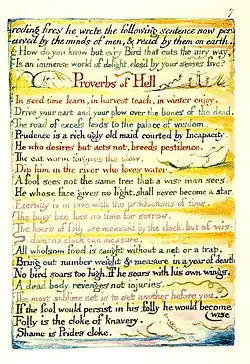 7
roding fires he wrote the following sentence now per-
cieved by the minds of men, & read by them on earth.
How do you know but ev'ry Bird that cuts the airy way,
Is an immense world of delight, clos'd by your senses five?
Proverbs of Hell
In seed time learn, in harvest teach, in winter enjoy.
Drive your cart and your plow over the bones of the dead.
The road of excess leads to the palace of wisdom.
Prudence is a rich ugly old maid courted by Incapacity.
He who desires but acts not, breeds pestilence.
The cut worm forgives the plow.
Dip him in the river who loves water.
A fool sees not the same tree that a wise man sees.
He whose face gives no light, shall never become a star.
Eternity is in love with the productions of time.
The busy bee has no time for sorrow.
The hours of folly are measur'd by the clock, but of wis-
-dom: no clock can measure.
All wholsom food is caught without a net or a trap.
Bring out number weight & measure in a year of dearth.
No bird soars too high, if he soars with his own wings.
A dead body, revenges not injuries.
The most sublime act is to set another before you.
If the fool would persist in his folly he would become
wise
Folly is the cloke of knavery.
Shame is Prides cloke.